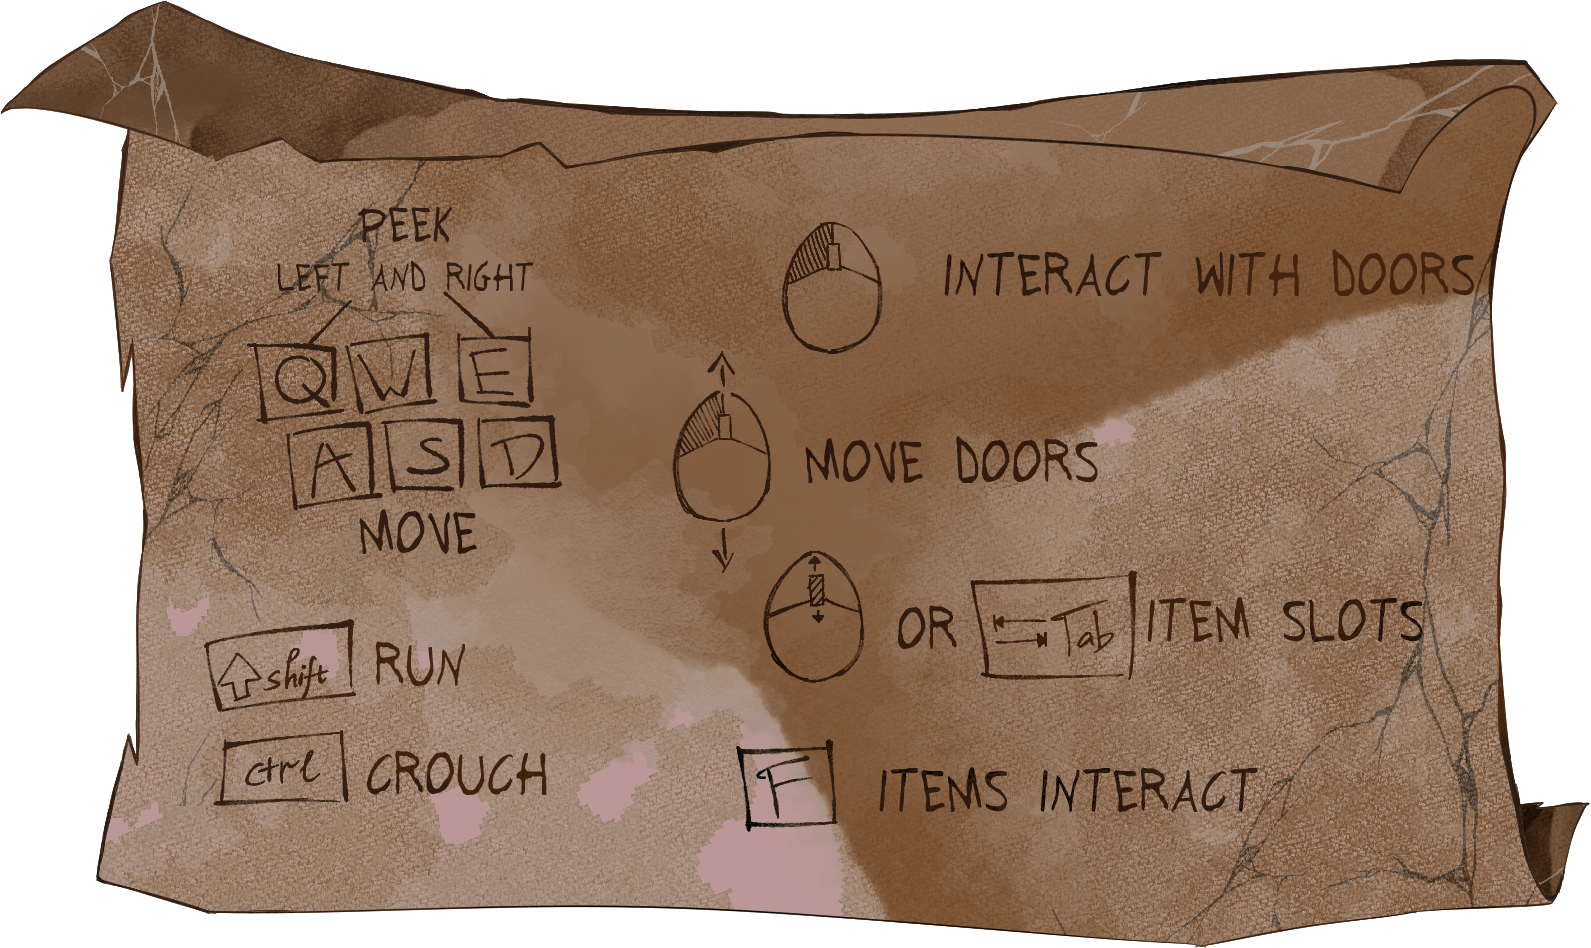 PEEK
LEFT AND RIGHT
Q W E
A S D
MOVE
shift RUN
ctrl CROUCH
INTERACT WITH DOORS
MOVE DOORS
OR Tab ITEM SLOTS
F ITEMS INTERACT